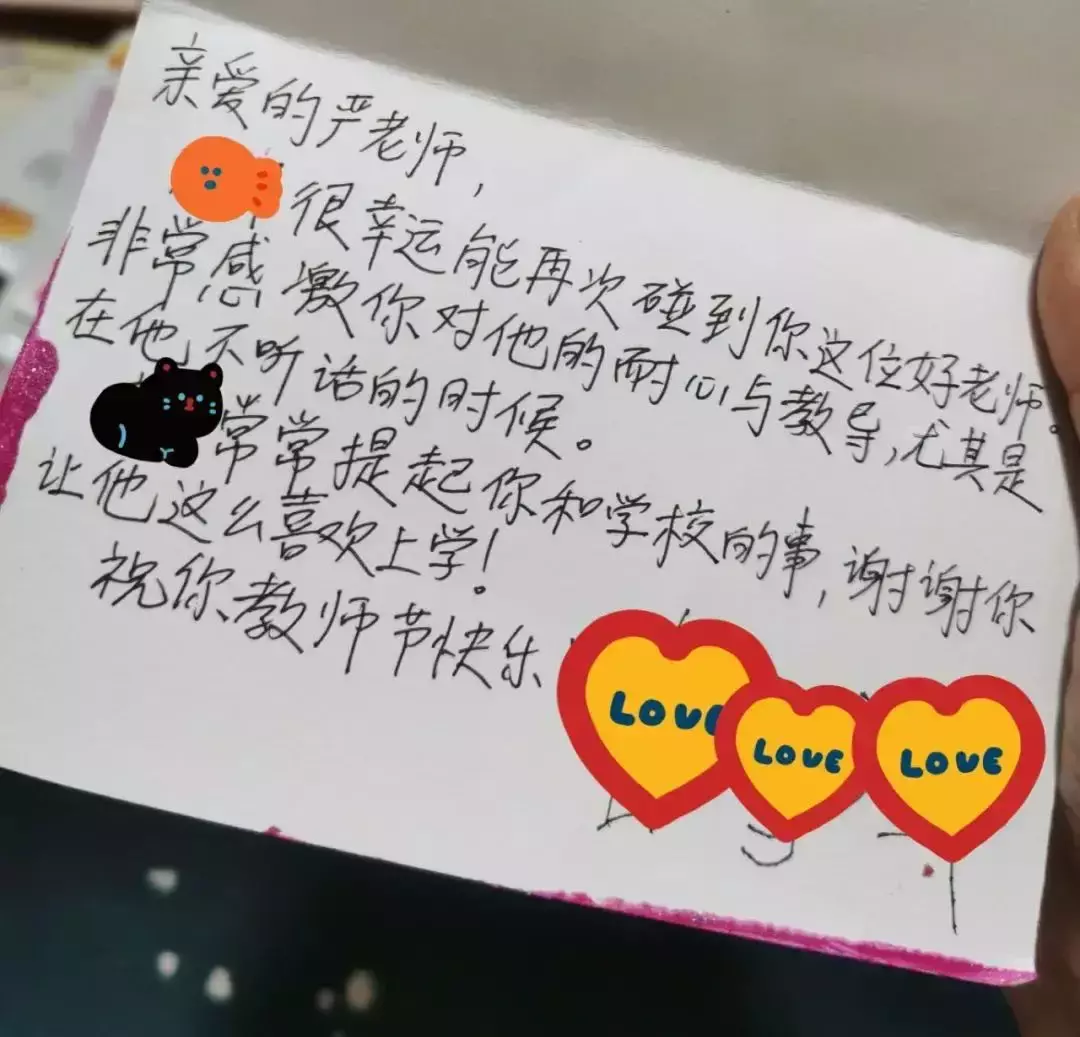 亲爱的严老师,
很幸运能再次碰到你这位好老师。
非常感激你对他的耐心与教导,尤其是
在他不听话的时候。
常常提起你和学校的事,谢谢你
让他这么喜欢上学!
祝你教师节快乐
LOVE
LOVE
LOVE